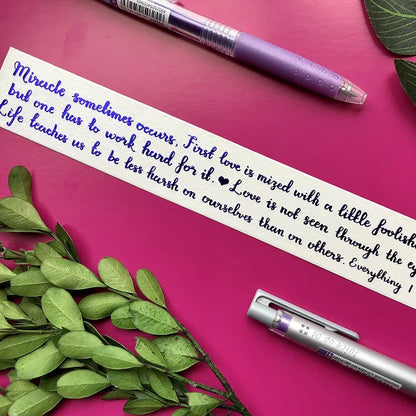 Miracle sometimes occurs, First love is mized with a little foolish
but one has to work hard for it. ♥ Love is not seen through the ey
Life teaches us to be less harsh on ourselves than on others. Everything I